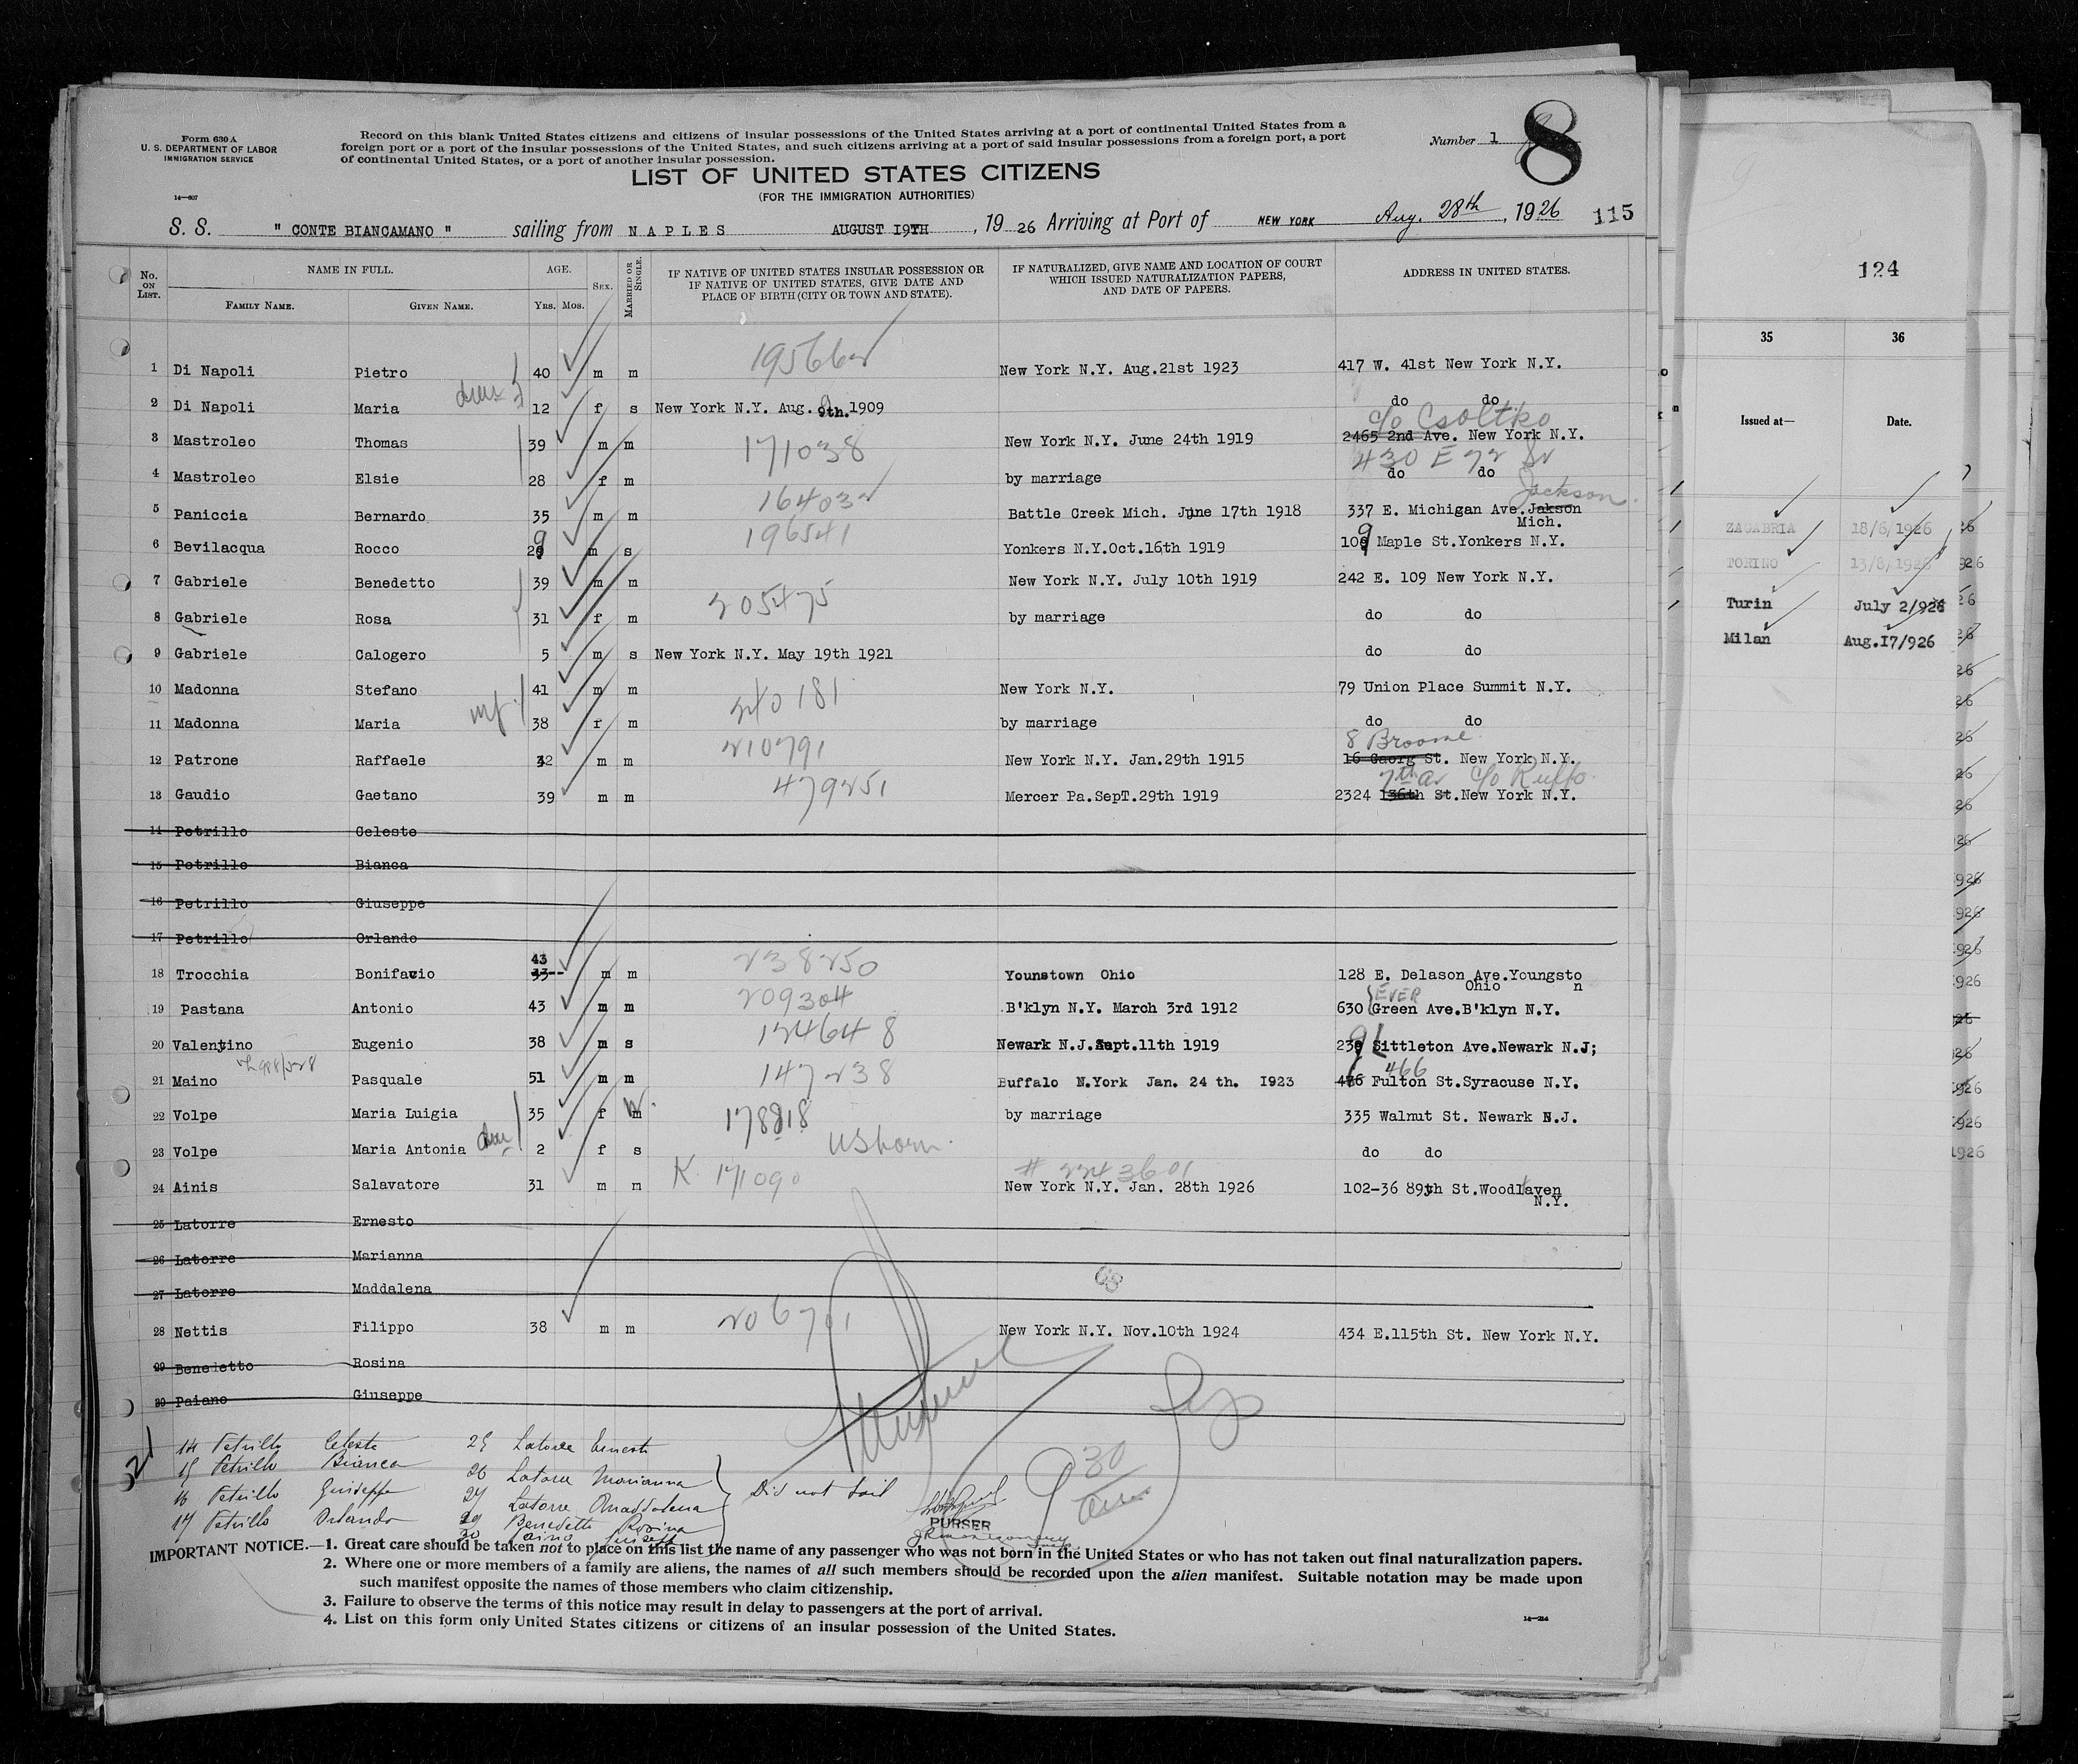 Form 630 A
U. S. DEPARTMENT OF LABOR
IMMIGRATION SERVICE
14—607
Record on this blank United States citizens and citizens of insular possessions of the United States arriving at a port of continental United States from a
foreign port or a port of the insular possessions of the United States, and such citizens arriving at a port of said insular possessions from a foreign port, a port
of continental United States, or a port of another insular possession.
Number 1 8
LIST OF UNITED STATES CITIZENS
(FOR THE IMMIGRATION AUTHORITIES)
S. S. " CONTE BIANCAMANO " sailing from NAPLES AUGUST I9TH, 19 26 Arriving at Port of NEW YORK Aug. 28th, 1926 115
No. ON LIST. NAME IN FULL. AGE. SEX. MARRIED OR SINGLE. IF NATIVE OF UNITED STATES INSULAR POSSESSION OR IF NATIVE OF UNITED STATES, GIVE DATE AND PLACE OF BIRTH (CITY OR TOWN AND STATE). IF NATURALIZED, GIVE NAME AND LOCATION OF COURT WHICH ISSUED NATURALIZATION PAPERS, AND DATE OF PAPERS. ADDRESS IN UNITED STATES.
FAMILY NAME. GIVEN NAME. Yrs. Mos.
1 Di Napoli Pietro 40 m m New York N.Y. Aug.21st 1923 417 W. 41st New York N.Y.
2 Di Napoli Maria 12 f s New York N.Y. Aug. 9th. 1909 do do
c/o Csoltko
3 Mastroleo Thomas 39 m m 171038 New York N.Y. June 24th 1919 2465 2nd Ave. New York N.Y.
430 E 72
4 Mastroleo Elsie 28 f m by marriage do do
Jackson
5 Paniccia Bernardo 35 m m 164032 Battle Creek Mich. June 17th 1918 337 E. Michigan Ave. Jakson
Mich.
6 Bevilacqua Rocco 29 m s 196541 Yonkers N.Y.Oct.16th 1919 109 Maple St.Yonkers N.Y.
7 Gabriele Benedetto 39 m m New York N.Y. July 10th 1919 242 E. 109 New York N.Y.
205475
8 Gabriele Rosa 31 f m by marriage do do
9 Gabriele Calogero 5 m s New York N.Y. May 19th 1921 do do
10 Madonna Stefano 41 m m 240181 New York N.Y. 79 Union Place Summit N.Y.
11 Madonna Maria 38 f m by marriage do do
8 Broome
12 Patrone Raffaele 32 m m 210791 New York N.Y. Jan.29th 1915 16 Gaorg St. New York N.Y.
7th Av c/o Ruffo
13 Gaudio Gaetano 39 m m 479251 Mercer Pa.SepT.29th 1919 2324 136th St.New York N.Y.
14 Petrillo Celeste
15 Petrillo Bianca
16 Petrillo Giuseppe
17 Petrillo Orlando
43
18 Trocchia Bonifavio 33-- m m 238250 Younstown Ohio 128 E. Delason Ave.Youngsto
Ohio n
EVER
19 Pastana Antonio 43 m m 209304 B'klyn N.Y. March 3rd 1912 630 Green Ave.B'klyn N.Y.
20 Valentino Eugenio 38 m s 124648 Newark N.J.Sept.11th 1919 239 Littleton Ave.Newark N.J;
466
21 Maino Pasquale 51 m m 147238 Buffalo N.York Jan. 24 th. I923 476 Fulton St.Syracuse N.Y.
22 Volpe Maria Luigia 35 f m W. 178818 by marriage 335 Walnut St. Newark N.J.
23 Volpe Maria Antonia 2 f s US born do do
K 171090 # 2243601
24 Ainis Salavatore 31 m m New York N.Y. Jan. 28th 1926 102-36 89th St.Woodlaven
N.Y.
25 Latorre Ernesto
26 Latorre Marianna
27 Latorre Maddalena
28 Nettis Filippo 38 m m 206701 New York N.Y. Nov.10th 1924 434 E.115th St. New York N.Y.
29 Benedetto Rosina
30 Paiano Giuseppe
14 Petrillo Celeste 25 Latorre Ernesto
15 Petrillo Bianca 26 Latorre Marianna
16 Petrillo Giuseppe 27 Latorre Maddalena Did not sail
17 Petrillo Orlando 29 Benedetti Rosina
30
30
PURSER
IMPORTANT NOTICE.—1. Great care should be taken not to place on this list the name of any passenger who was not born in the United States or who has not taken out final naturalization papers.
2. Where one or more members of a family are aliens, the names of all such members should be recorded upon the alien manifest. Suitable notation may be made upon
such manifest opposite the names of those members who claim citizenship.
3. Failure to observe the terms of this notice may result in delay to passengers at the port of arrival.
4. List on this form only United States citizens or citizens of an insular possession of the United States.
14—214
124
35 36
Issued at— Date.
ZAGABRIA 18/6/1926
TORINO 13/8/1926
Turin July 2/926
Milan Aug.I7/926